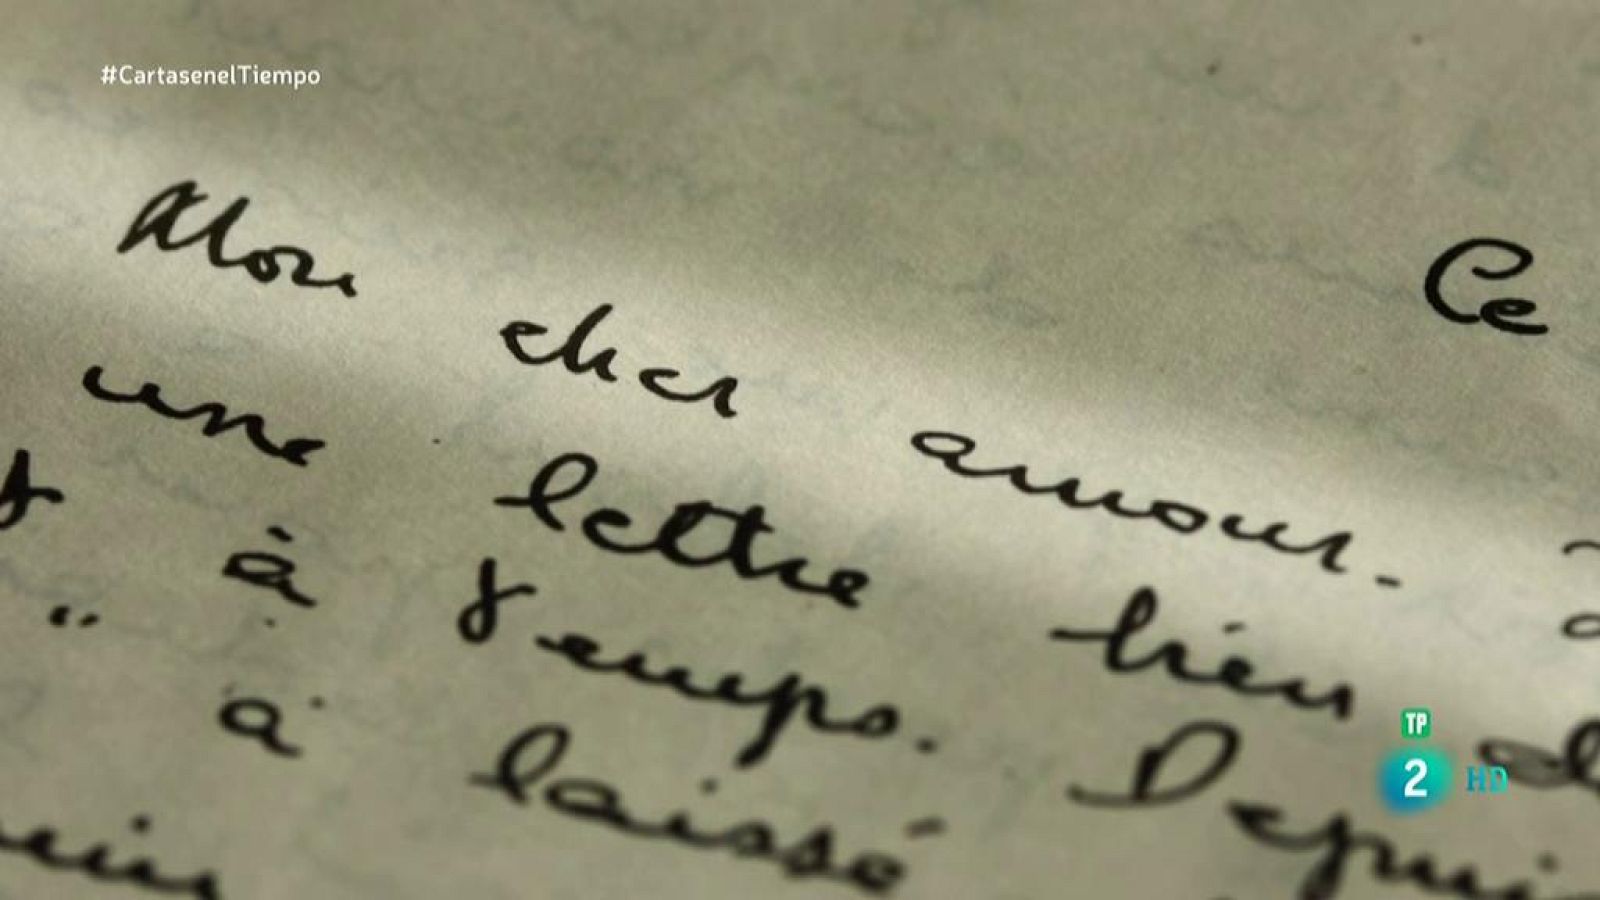 #CartasenelTiempo
Ce
Mon cher amour.
une lettre bien
à temps. Depui
à laissé
TP
2 HD